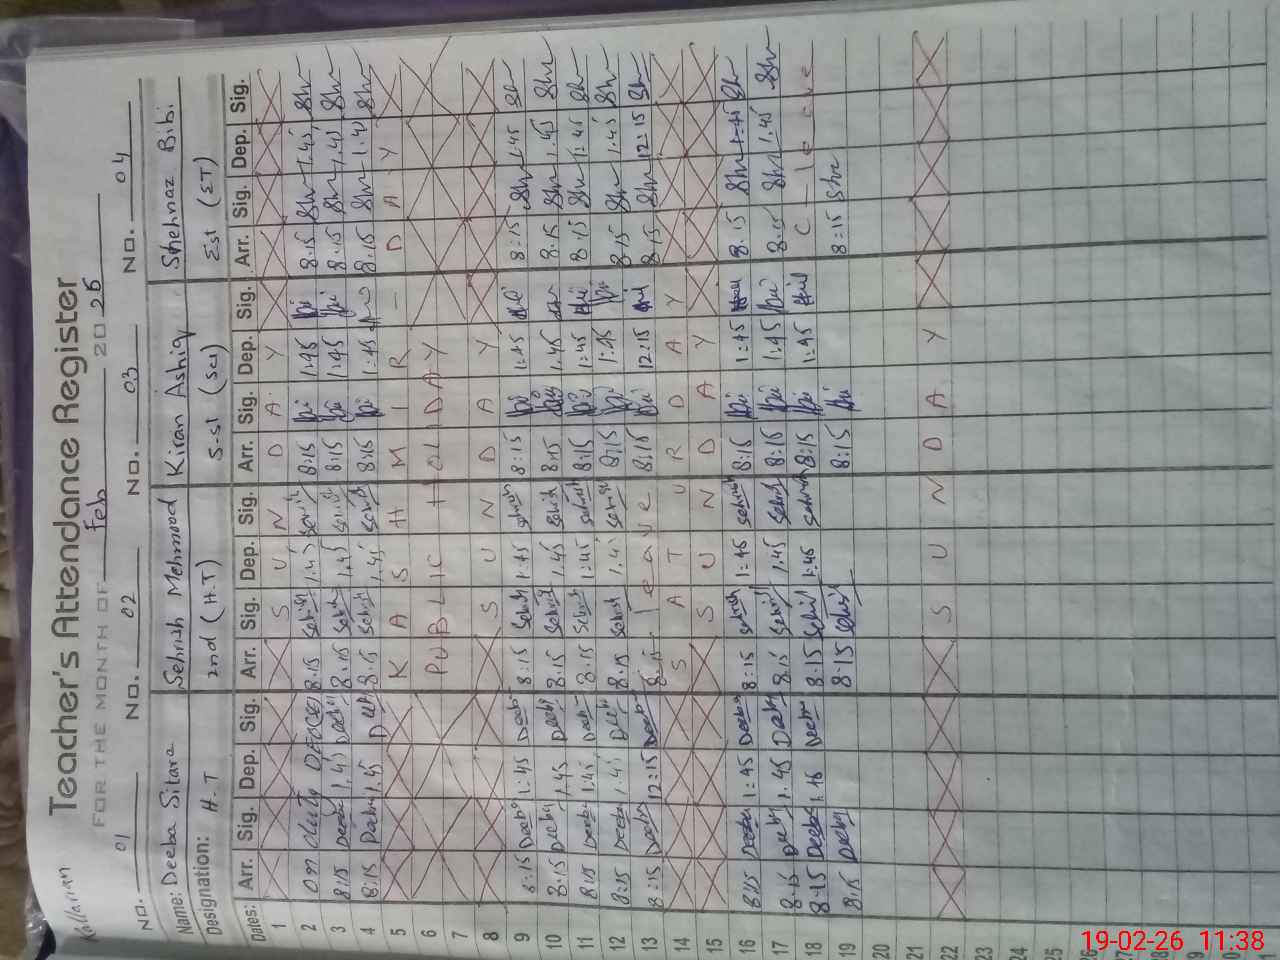 Kallarian
Teacher's Attendance Register
FOR THE MONTH OF Feb 20 26
NO. 01 NO. 02 NO. 03 NO. 04
Name: Deeba Sitara Sehrish Mehmood Kiran Ashiq Shehnaz Bibi
Designation: H.T 2nd (H.T) S-st (Sci) Est (ET)
Dates: Arr. Sig. Dep. Sig. Arr. Sig. Dep. Sig. Arr. Sig. Dep. Sig. Arr. Sig. Dep. Sig.
1 S U N D A Y
2 On Duty 8.15 Sehrish 1.45 Sehrish 8:15 1:45 8.15 Shn 1.45 Shn
3 8:15 Deeba 1.45 Deeba 8.15 Sehrish 1.45 Sehrish 8:15 1:45 8.15 Shn 1.45 Shn
4 8:15 Deeba 1.45 Deeba 8.15 Sehrish 1.45 Sehrish 8:15 1:45 8.15 Shn 1.45 Shn
5 K A S H M I R - D A Y
6 PUBLIC HOLIDAY
7
8 S U N D A Y
9 8:15 Deeba 1:45 Deeba 8:15 Sehrish 1:45 Sehrish 8:15 1:45 8:15 Shn 1.45 Shn
10 8:15 Deeba 1.45 Deeba 8.15 Sehrish 1.45 Sehrish 8:15 1.45 8.15 Shn 1.45 Shn
11 8:15 Deeba 1.45 Deeba 8.15 Sehrish 1:45 Sehrish 8:15 1:45 8.15 Shn 1:45 Shn
12 8:15 Deeba 1.45 Deeba 8.15 Sehrish 1.45 Sehrish 8:15 1:45 8.15 Shn 1.45 Shn
13 8:15 Deeba 12:15 Deeba 8.15 leave 8:15 12:15 8.15 Shn 12:15 Shn
14 S A T U R D A Y
15 S U N D A Y
16 8:15 Deeba 1:45 Deeba 8:15 Sehrish 1:45 Sehrish 8:15 1:45 8.15 Shn 1:45 Shn
17 8.15 Deeba 1.45 Deeba 8.15 Sehrish 1.45 Sehrish 8:15 1:45 8.15 Shn 1.45 Shn
18 8:15 Deeba 1.45 Deeba 8:15 Sehrish 1:45 Sehrish 8:15 1:45 C - leave
19 8:15 Deeba 8:15 Sehrish 8:15 8:15 Shn
20
21
22 S U N D A Y
23
24
25
26
27
28
19-02-26 11:38